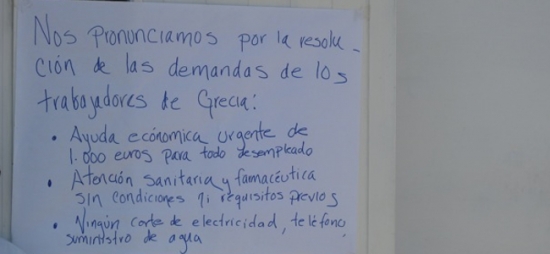 Nos pronunciamos por la resolu-
ción de las demandas de los
trabajadores de Grecia:
• Ayuda económica urgente de
1.000 euros para todo desempleado
• Atención sanitaria y famacéutica
sin condiciones ni requisitos previos
• Ningún corte de electricidad, teléfono,
suministro de agua